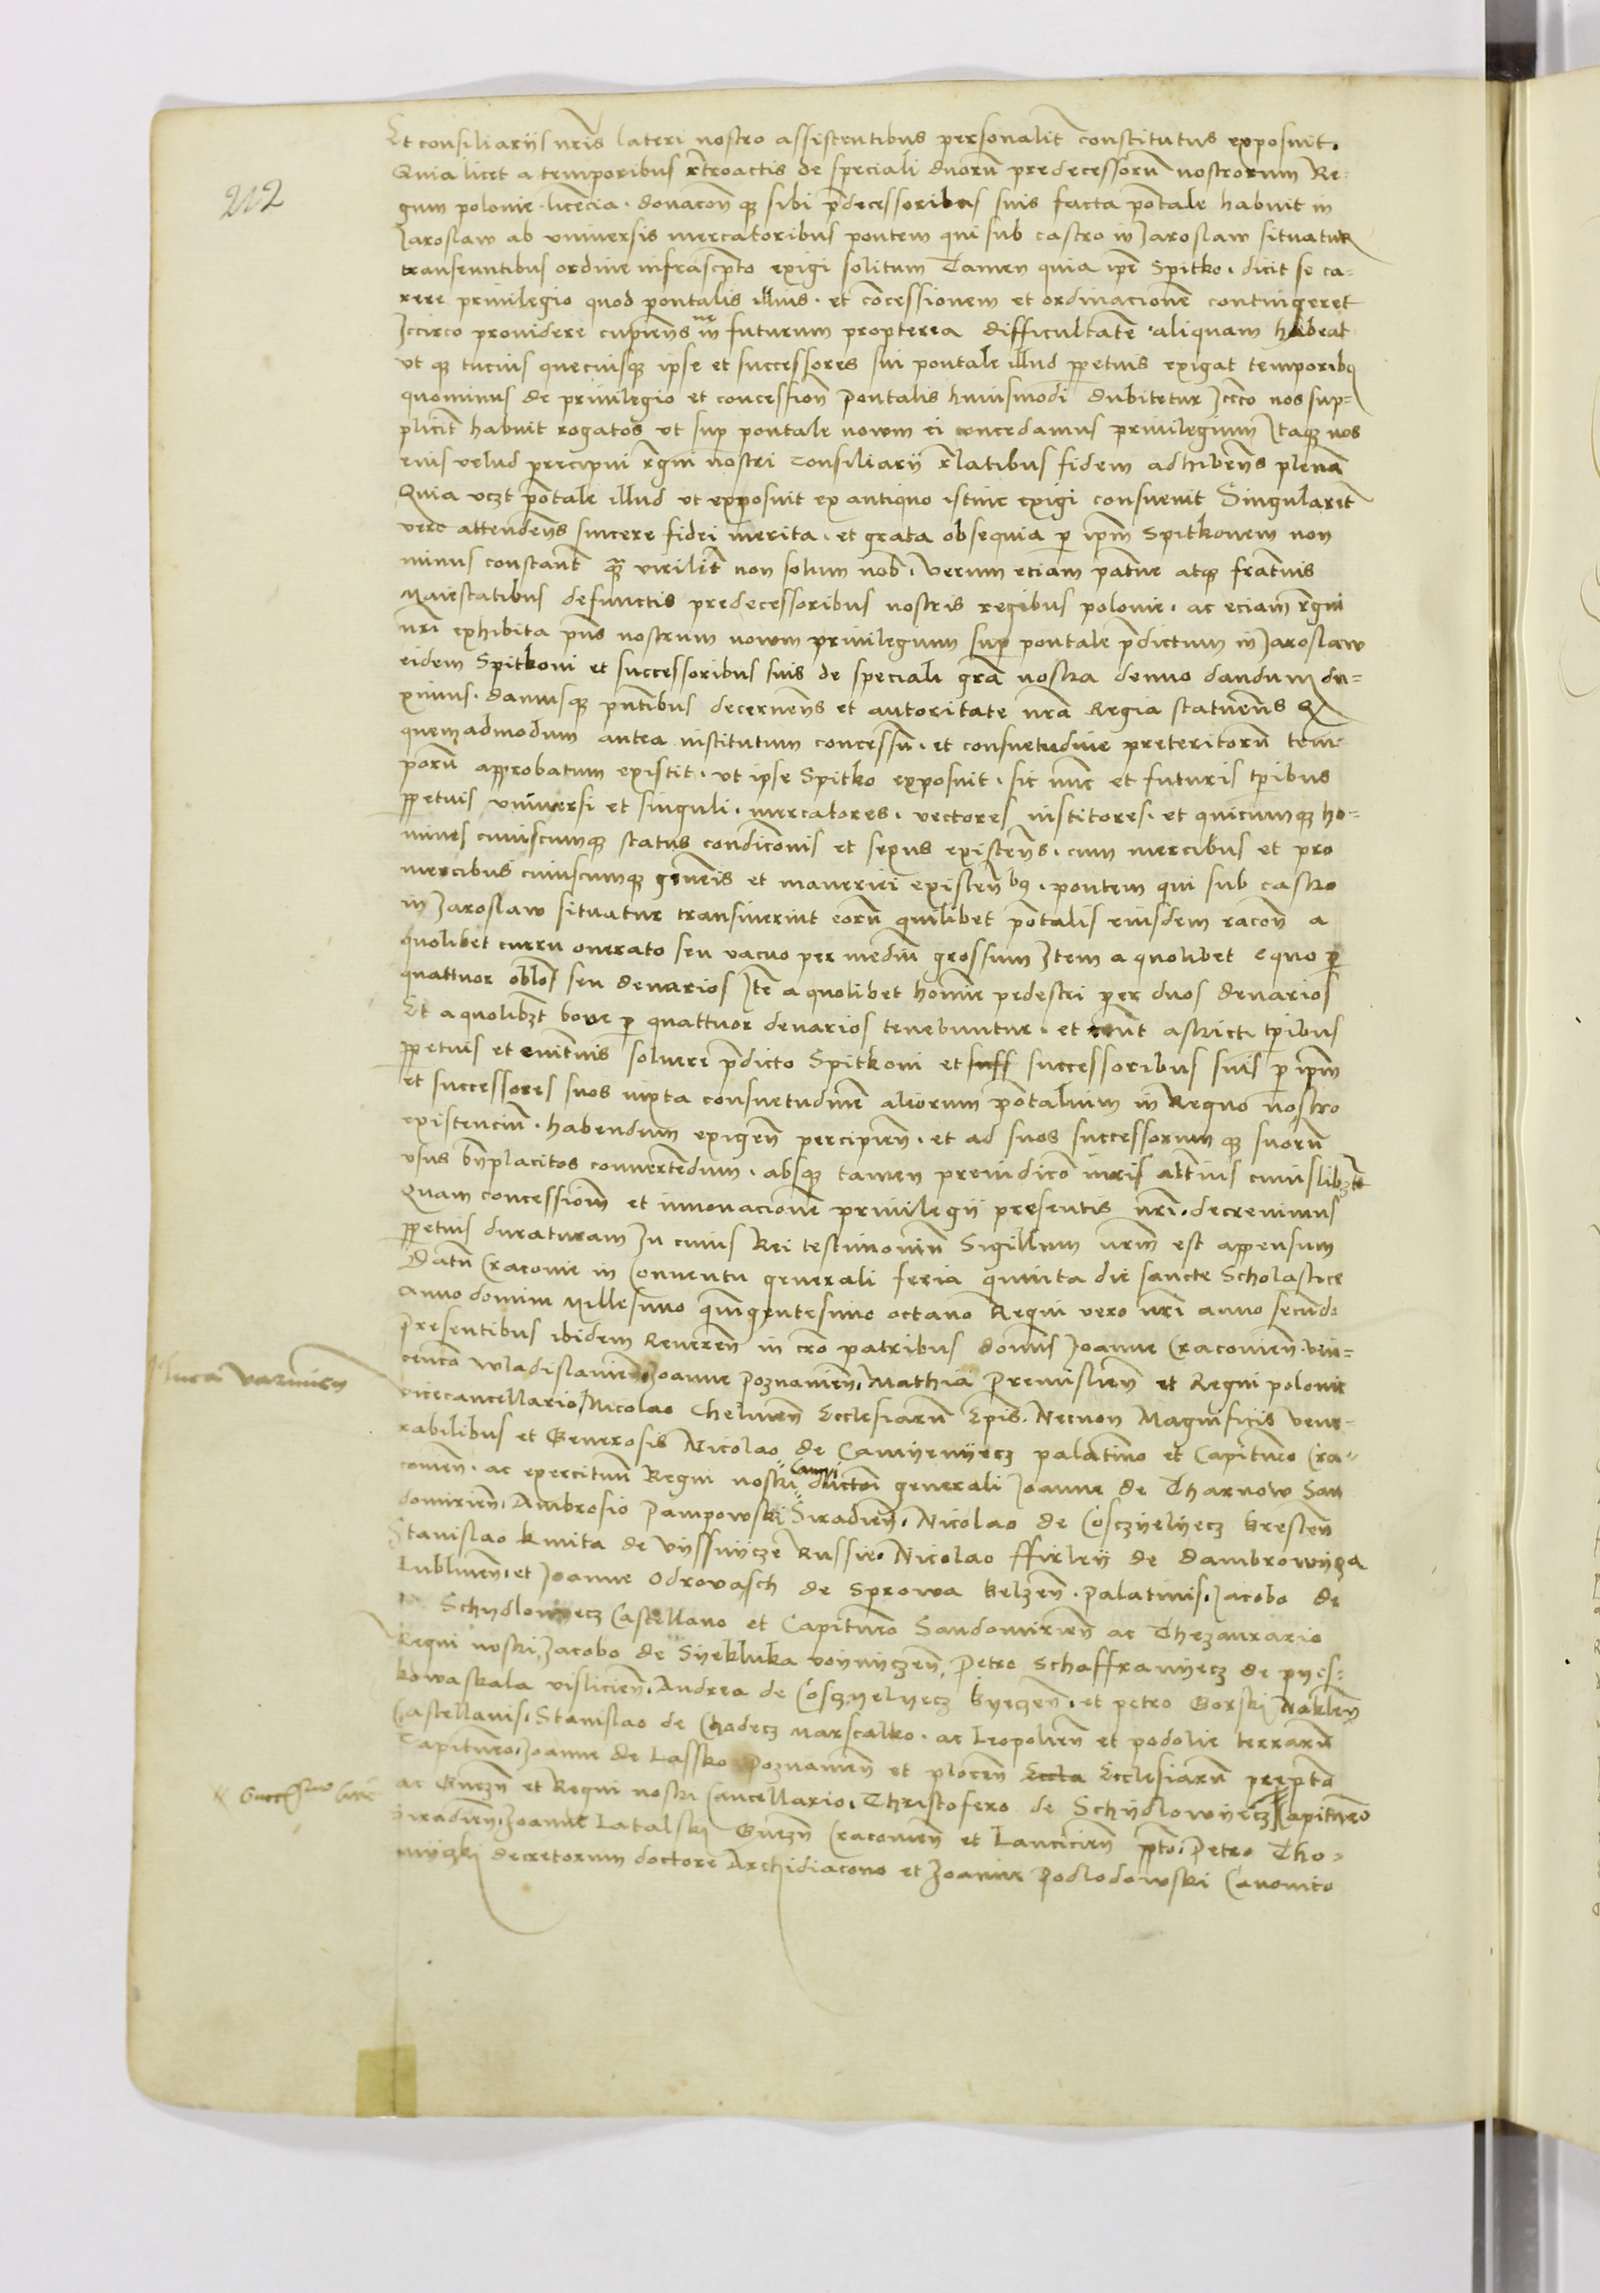 202
Et consiliarijs nris lateri nostro assistentibus personalit constitutus exposuit.
Quia licet a temporibus rtroactis de speciali duorū predecessorū nostrorum Re-
gum polonie licencia donacōn qz sibi pdecessoribus suis facta pontale habuit in
Jaroslaw ab universis mercatoribus pontem qui sub castro in Jaroslaw situatur
transeuntibus ordine infrascpto exigi solitum Tamen quia ipe Spitko dicit se ca-
rere privilegio quod pontalis illius et concessionem et ordinacionē contingeret
Iccirco providere cupiens ne in futurum propterea difficultatē aliquam habeat
ut qz tucius queciusqz ipse et successores sui pontale illud ppetuis exigat temporibq
quominus de privilegio et concession pontalis huiusmodi dubitetur Iccco nos sup-
plicit habuit rogatos ut sup pontale novum ei concedamus privilegium Itaqz nos
eius velud precipui rgni nostri consiliarij rlatibus fidem adhibens plenā
Quia uczt pontale illud ut exposuit ex antiquo istinc exigi consuevit Singularit
vero attendens sincere fidei merita et grata obsequia p ipm Spitkonem non
minus constant qz virilit non solum nob. verum eciam patne atqz fratnis
Maiestatibus defunctis predecessoribus nostris regibus polonie ac eciam rgni
nri exhibita pns nostrum novum privilegium sup pontale pdictum in Jaroslaw
eidem Spitkoni et successoribus suis de speciali gra nostra denuo dandum du-
ximus damusqz pntibus decernens et autoritate nra Regia statuens Q
quemadmodum antea institutum concessū et consuetudine preteritorū tem-
porū approbatum existit ut ipse Spitko exposuit sic nunc et futuris tpibus
ppetuis universi et singuli mercatores vectores institores et quicumqz ho-
mines cuiuscumqz status condicionis et sexus existens cum mercibus et pro
mercibus cuiuscumqz generis et maneriei existen bq pontem qui sub castro
in Jaroslaw situatur transiverint eorū quilibet pontalis eiusdem racōn a
quolibet curru onerato seu vacuo per mediū grossum Item a quolibet equo p
quattuor oblos seu denarios Itē a quolibet homine pedestri per duos denarios
Et a quolibzt bove p quattuor denarios tenebuntur et sunt astricti tpibus
ppetuis et evitnis solvere pdicto Spitkoni et suss successoribus suis p ipm
et successores suos iuxta consuetudinē aliorum pontalium in Regno nostro
existenciū habendum exigen percipien et ad suos successorum qz suorū
usus bnplacitos convertendum absqz tamen preiudico iuris altius cuiuslibzt
Quam concessionē et innovacionē privilegij presentis nri decrevimus
ppetuis duraturam In cuius Rei testimoniū Sigillum nrm est appensum
Datū Cracovie in Conventu generali feria quinta die sancte Scholastice
Anno domini Millesimo quingentesimo octavo Regni vero nri anno secundo
presentibus ibidem Reveren in cro patribus domis Joanne Cracovien vin-
Luca varmien
cenco wladislavien Joanne poznamen Mathia premislien et Regni polonie
vicecancellario Nicolao Chelmen Ecclesiarū Epis. Necnon Magnificis vene-
rabilibus et Generosis Nicolao de Camyenyecz palatino et Capitneo Cra-
covien ac exercituū Regni nostri campi ductori generali Joanne de Tharnow San
domirien Ambrosio pampowski Siradien Nicolao de Cosczyelyecz bresten
Stanislao kmita de vyssnycze Russie Nicolao ffirleij de dambrowyza
Lublinen et Joanne Odrovasch de Sprowa belzen palatinis Jacobo de
Schydlowyecz Castellano et Capitneo Sandomirien ac Thezaurario
Regni nostri Jacobo de Syekluka voynyczen Petro Schaffranyecz de pyes-
kowaskala vislicien Andrea de Cosczyelyecz byeczen et petro Gorski Naklen
Castellanis Stanislao de Chodecz Marscalko ac leopolien et podolie terrarū
Capitneo Joanne de Lassko poznamen et plocen Eccla Ecclesiarū prepto
ac Gnezn et Regni nostri Cancellario Christofero de Schydlowyecz Capitneo
Siradien Joanne Latalski Gnezn Cracovien et Lancicien ppto Petro Tho-
myczki decretorum doctore Archidiacono et Joanne podlodowski Canonico